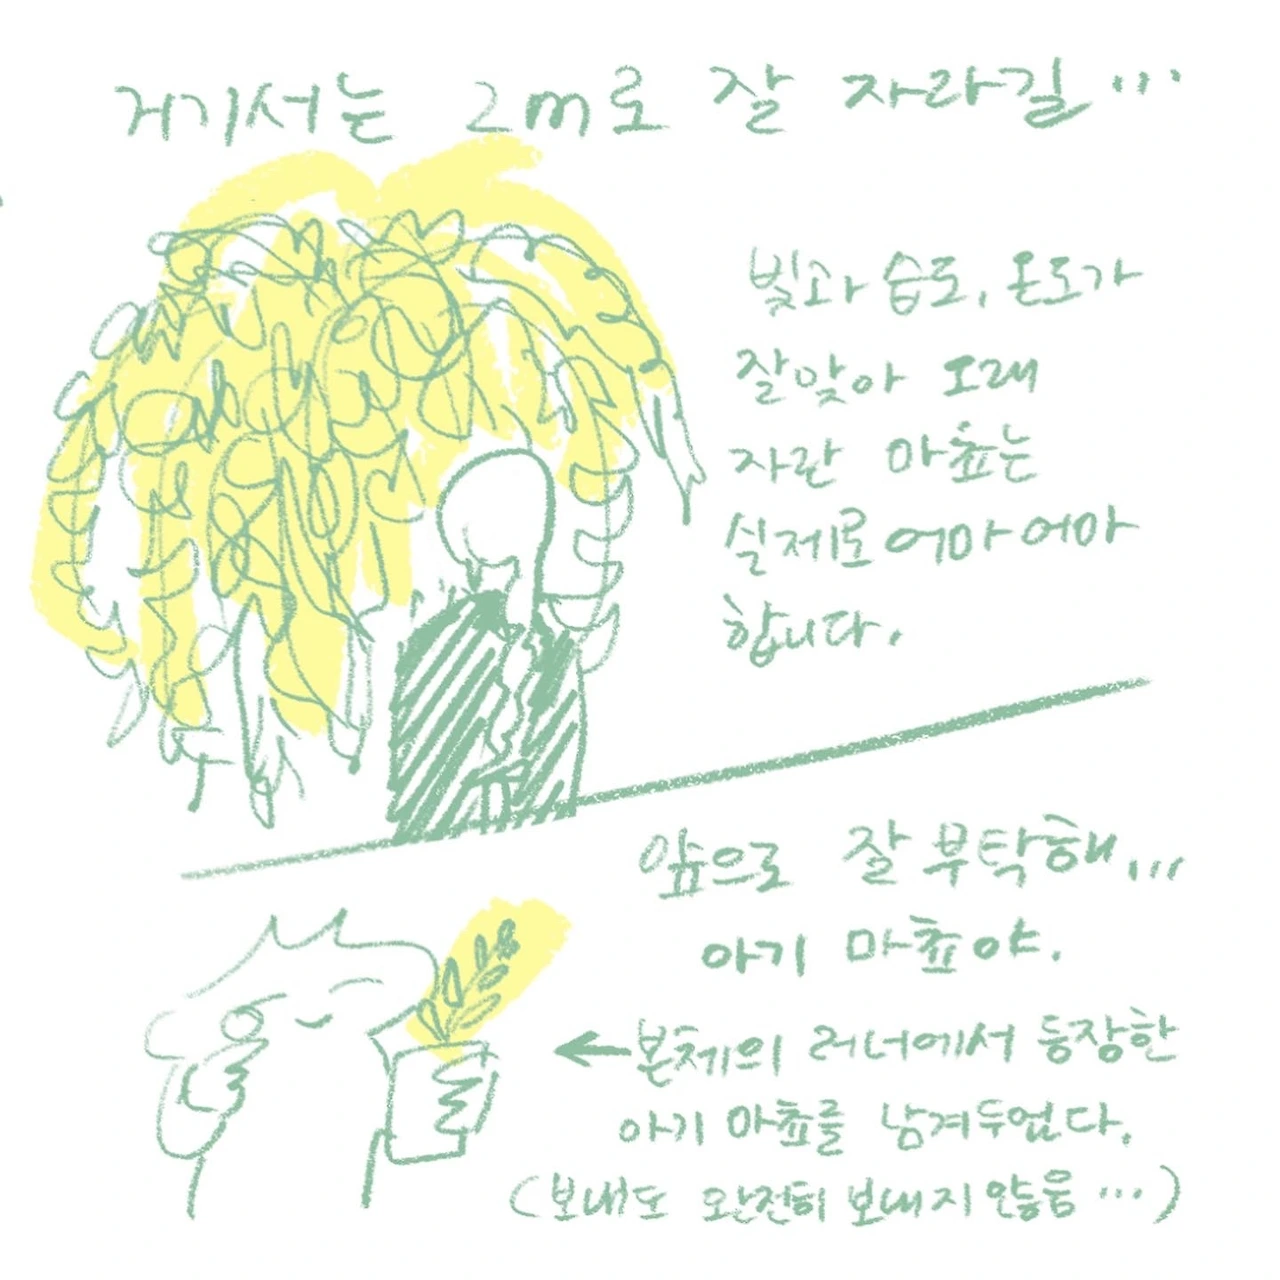 거기서는 2m로 잘 자라길...
빛과 습도, 온도가
잘맞아 오래
자란 마쵸는
실제로 어마어마
합니다.
앞으로 잘 부탁해...
아기 마쵸야.
←본체의 러너에서 등장한
아기 마쵸를 남겨두었다.
(보내도 완전히 보내지 않음...)